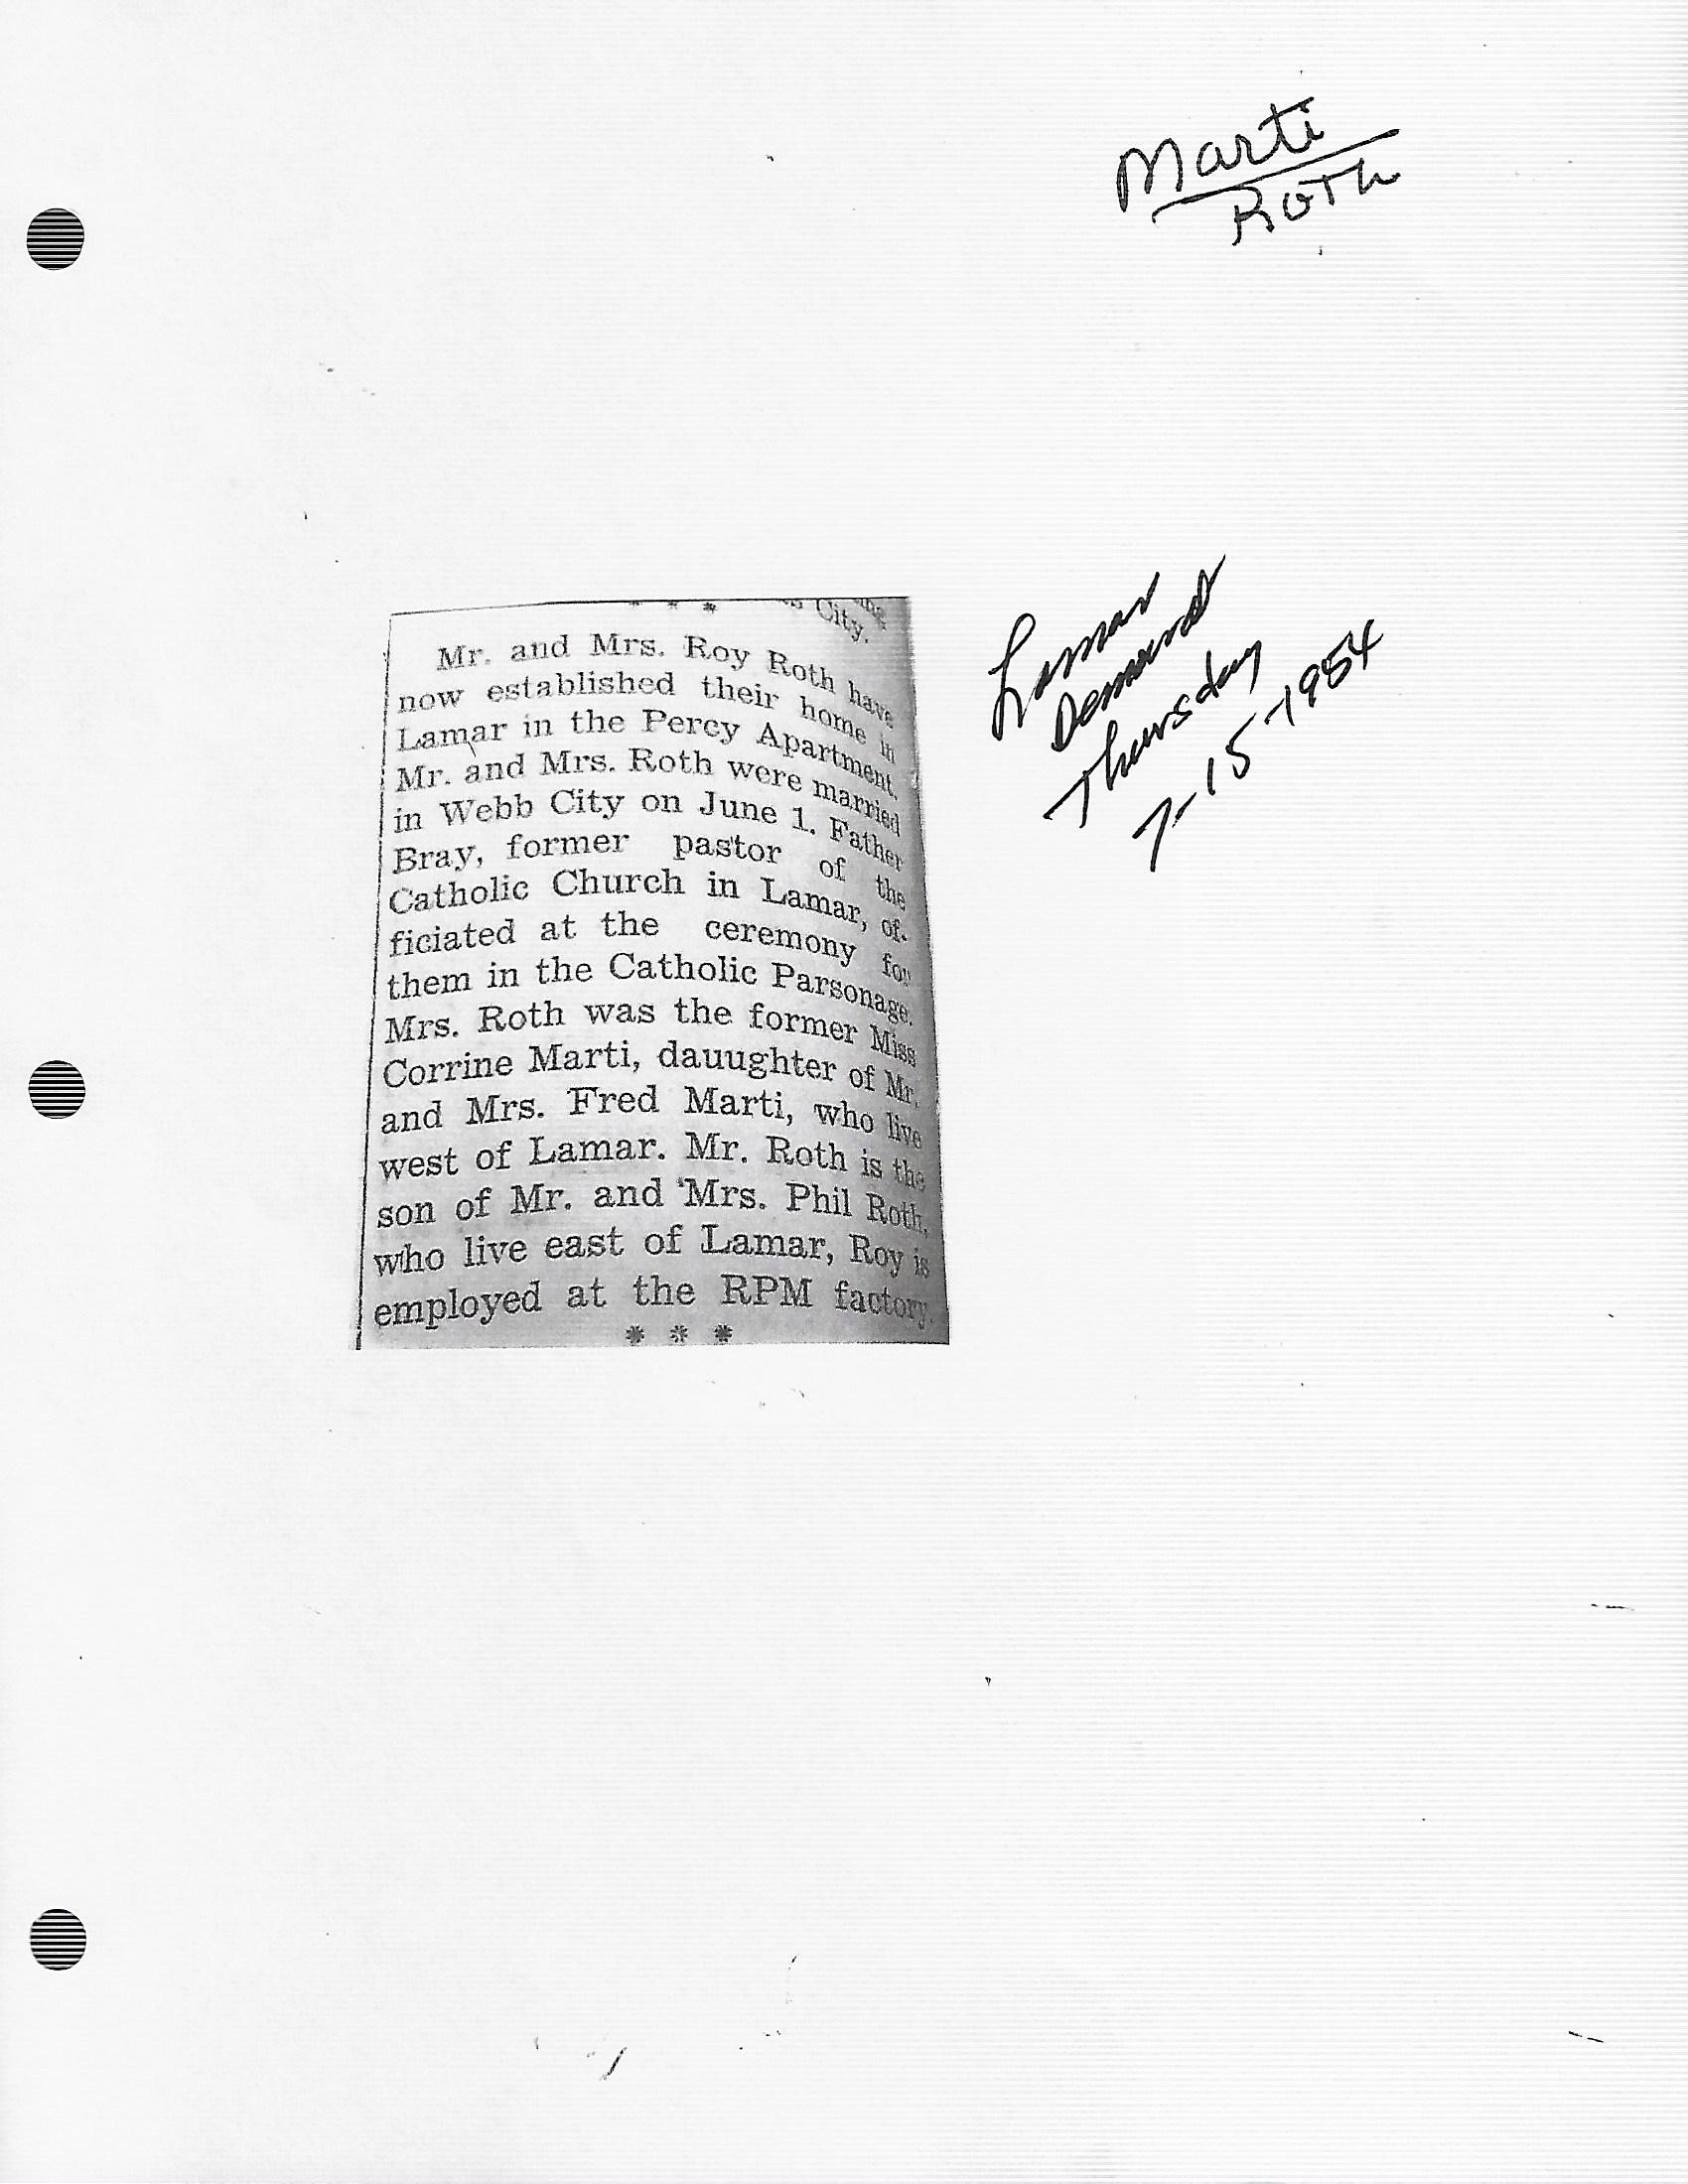 Marti
Roth
Lamar
Democrat
Thursday
7-15-1954
City.
* * *
Mr. and Mrs. Roy Roth have
now established their home in
Lamar in the Percy Apartment.
Mr. and Mrs. Roth were married
in Webb City on June 1. Father
Bray, former pastor of the
Catholic Church in Lamar, of-
ficiated at the ceremony for
them in the Catholic Parsonage.
Mrs. Roth was the former Miss
Corrine Marti, dauughter of Mr.
and Mrs. Fred Marti, who live
west of Lamar. Mr. Roth is the
son of Mr. and Mrs. Phil Roth,
who live east of Lamar, Roy is
employed at the RPM factory.
* * *